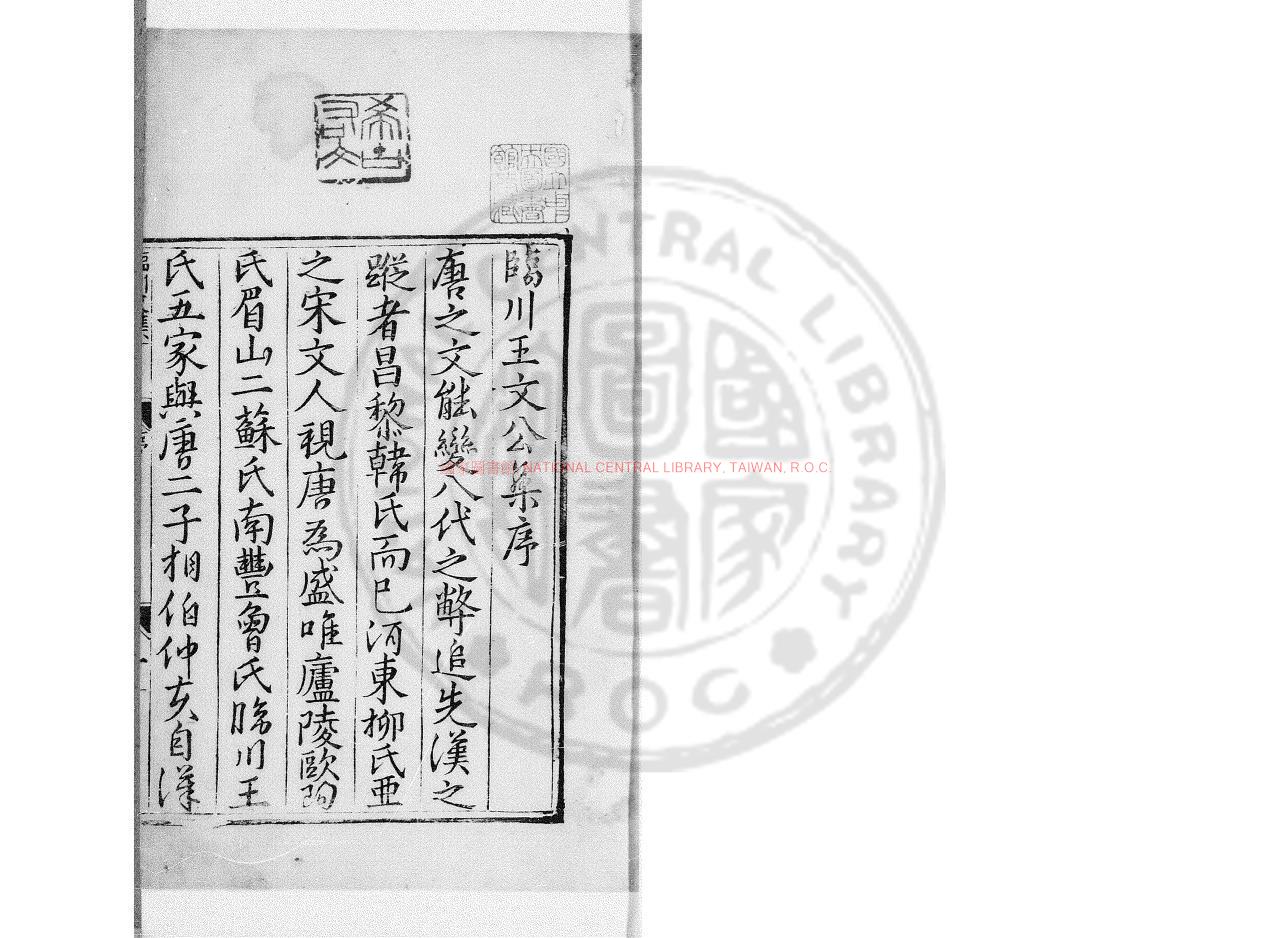 臨川王文公集序
唐之文能變八代之弊追先漢之
蹤者昌黎韓氏而已河東柳氏亞
之宋文人視唐為盛唯廬陵歐陽
氏眉山二蘇氏南豐曾氏臨川王
氏五家與唐二子相伯仲夫自漢
希古
右文
NATIONAL CENTRAL LIBRARY, TAIWAN, R.O.C.
國家圖書館
CENTRAL LIBRARY
ROC